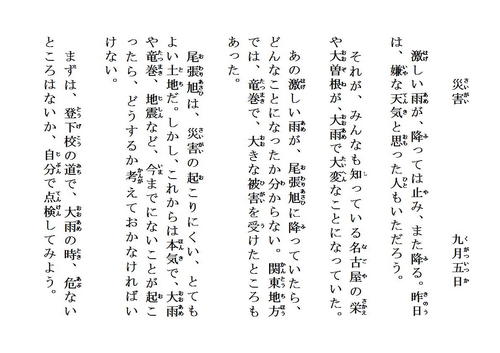 災害　九月五日
激しい雨が、降っては止み、また降る。昨日
は、嫌な天気と思った人もいただろう。
それが、みんなも知っている名古屋の栄
や大曽根が、大雨で大変なことになっていた。
あの激しい雨が、尾張旭に降っていたら、
どんなことになったか分からない。関東地方
では、竜巻で、大きな被害を受けたところも
あった。
尾張旭は、災害の起こりにくい、とても
よい土地だ。しかし、これからは本気で、大雨
や竜巻、地震など、今までにないことが起こ
ったら、どうするか考えておかなければい
けない。
まずは、登下校の道で、大雨の時、危ない
ところはないか、自分で点検してみよう。